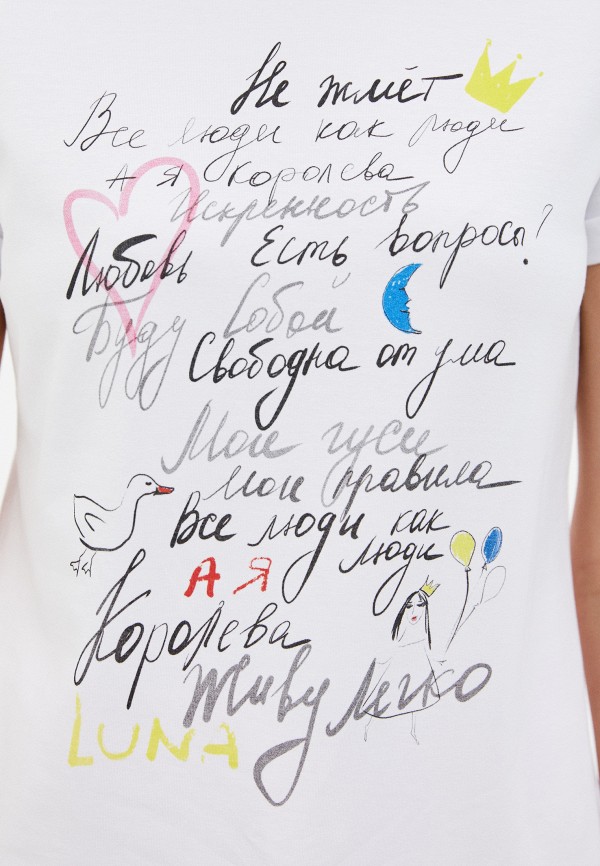 Не жмёт
Все люди как люди
А я королева
Искренность
Любовь Есть вопросы?
Буду Собой
Свободна от ума
Мои гуси
мои правила
Все люди как
люди
А Я
Королева
Живу Легко
LUNA